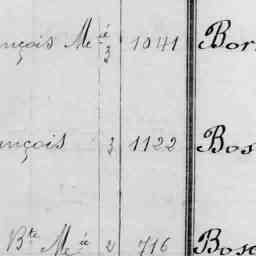 nçois Me é 3 1041 Bor
nçois 3 1122 Bos
Bte Me é 2 716 Bosc